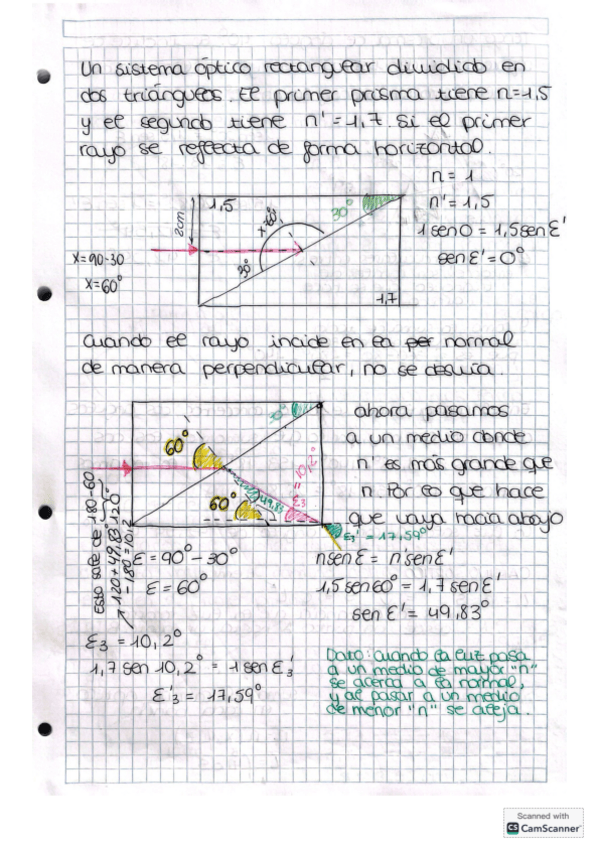 Un sistema óptico rectangular dividido en
dos triángulos. El primer prisma tiene n=1,5
y el segundo tiene n'=1,7. Si el primer
rayo se reflecta de forma horizontal.
n=1
n'=1,5
1sen0=1,5senƐ'
senƐ'=0°
1,5
30°
2cm
30°
1,7
x=90-30
x=60°
Cuando el rayo incide en la normal
de manera perpendicular, no se desvía.
ahora pasamos
a un medio donde
n' es más grande que
n. Por lo que hace
que vaya hacia abajo
60°
60°
49,83
10,2°
Ɛ3
Ɛ3'=17,59°
Esto sale de 180-60
120+49,83
-180=10,2
120°
Ɛ=90°-30°
Ɛ=60°
nsenƐ=n'senƐ'
1,5sen60°=1,7senƐ'
senƐ'=49,83°
Ɛ3=10,2°
1,7 sen 10,2°=1senƐ3'
Ɛ'3=17,59°
Dato: cuando la luz pasa
a un medio de mayor "n"
se acerca a la normal,
y al pasar a un medio
de menor "n" se aleja.
Scanned with
CS CamScanner